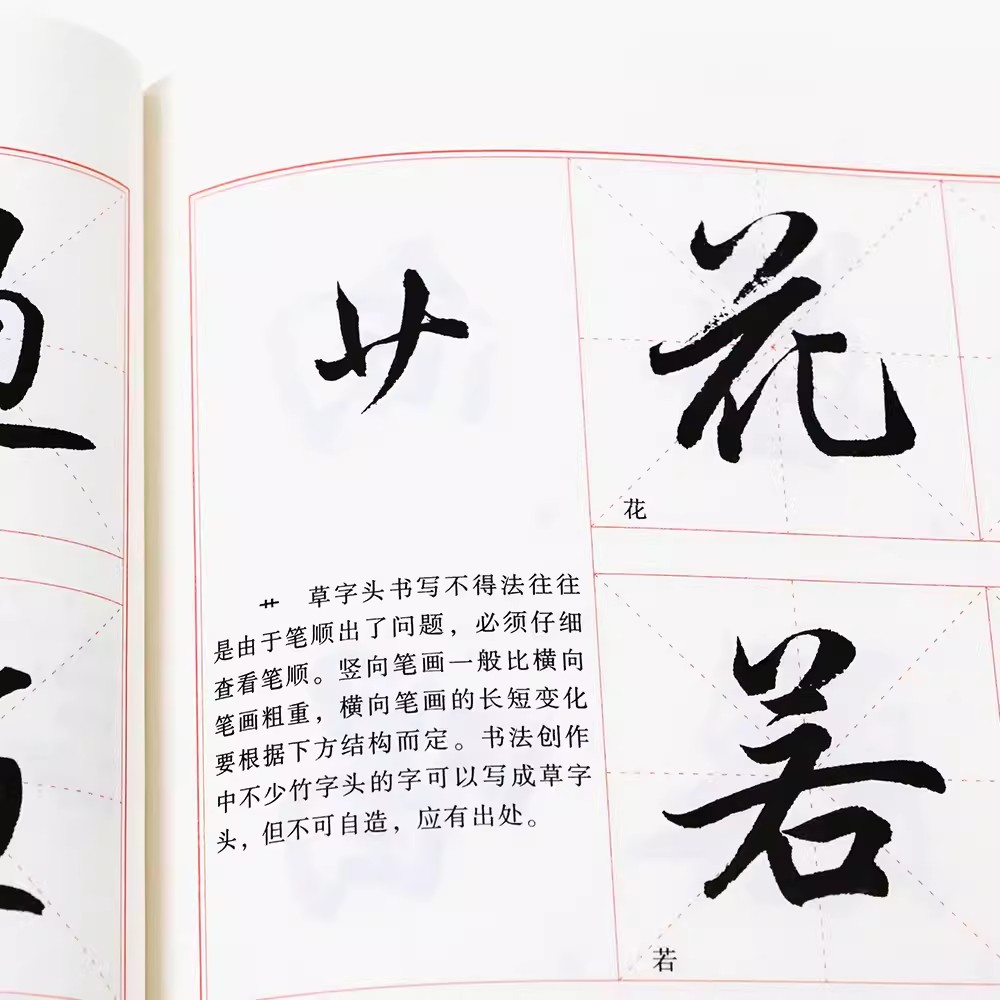 艹
艹 草字头书写不得法往往
是由于笔顺出了问题，必须仔细
查看笔顺。竖向笔画一般比横向
笔画粗重，横向笔画的长短变化
要根据下方结构而定。书法创作
中不少竹字头的字可以写成草字
头，但不可自造，应有出处。
花
花
若
若